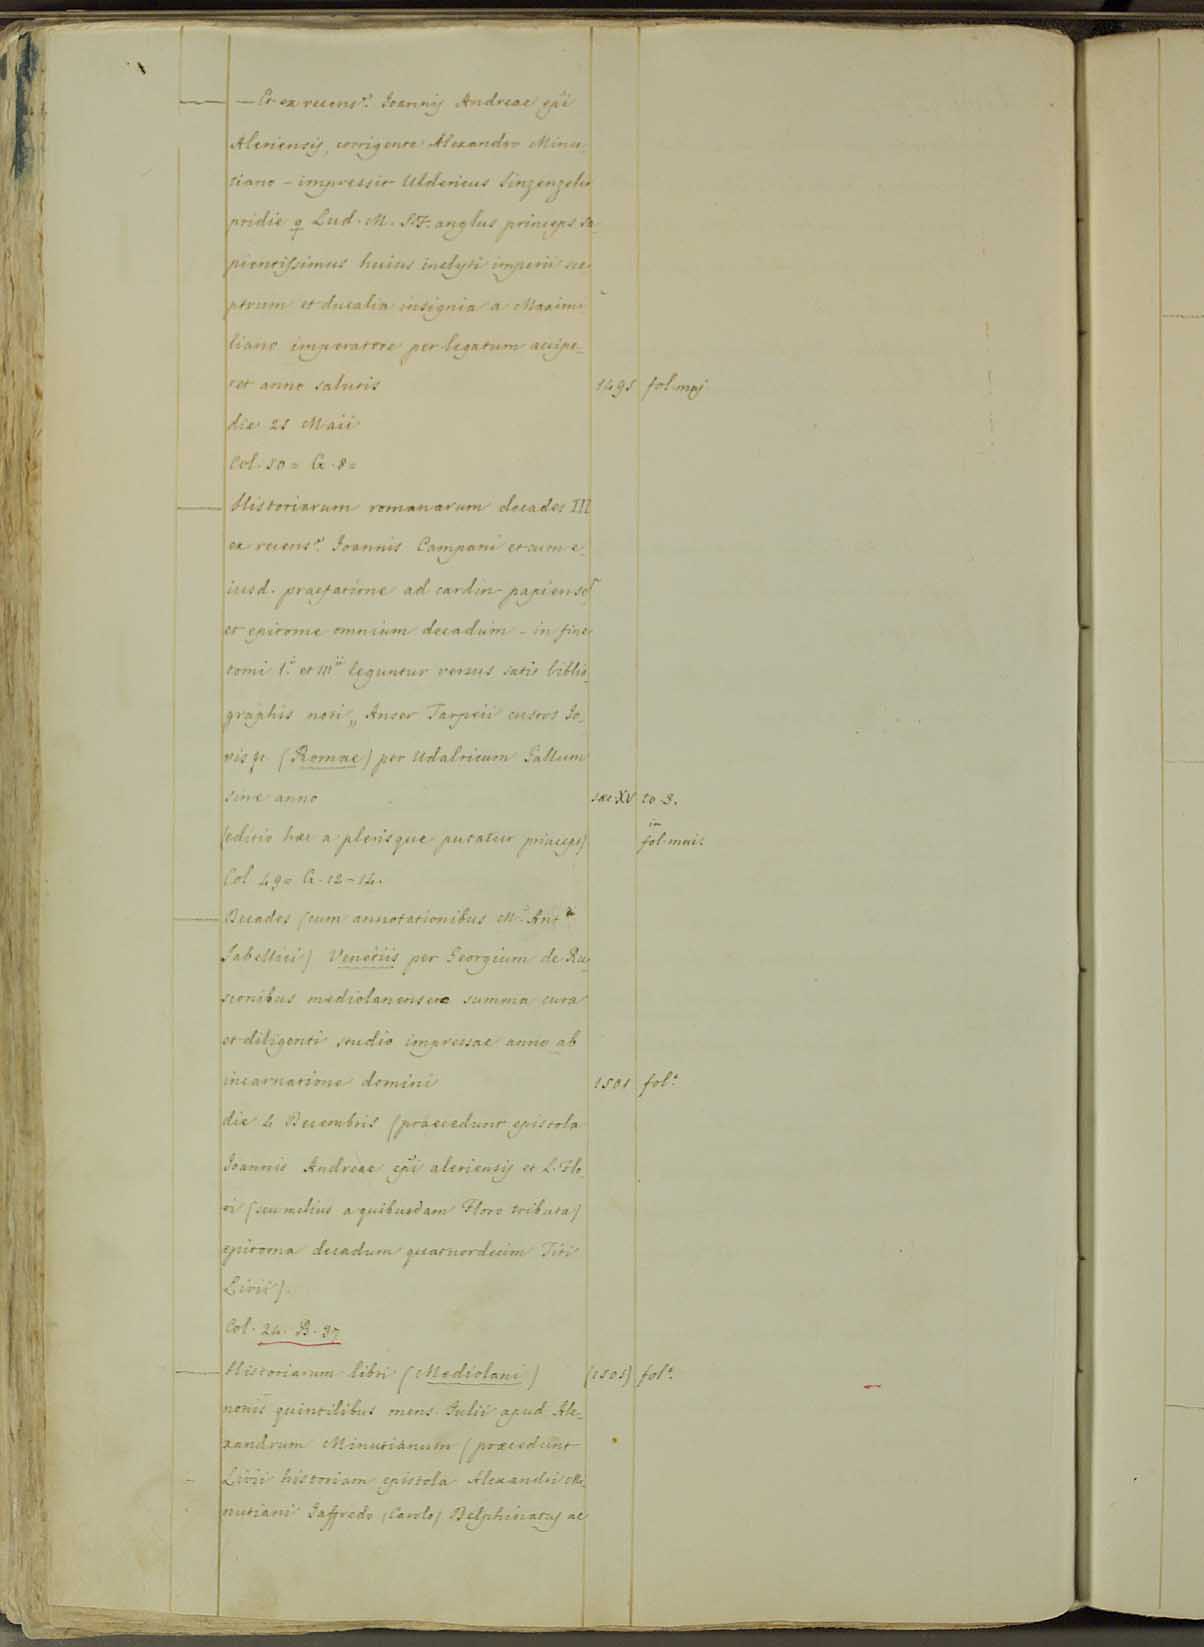 — Et ex recens.e Joannis Andreae epi
Aleriensis, corrigente Alexandro Minu-
tiano - impressit Uldericus Sinzenzeler
pridie q Lud. M. SF. anglus princeps sa-
pientissimus huius inclyti imperii sce-
ptrum et ducalia insignia a Maximi
liano imperatore per legatum accipe-
ret anno salutis 1495 fol. maj
die 25 Maii
Col. 50 = G. 8 =
Historiarum romanarum decades III
ex recens.e Joannis Campani et cum e-
iusd. praefatione ad cardin. papiensem
et epitome omnium decadum - in fine
tomi I.i et III.ii leguntur versus satis biblio-
graphis noti „ Anser Tarpeii custos Jo-
vis (Romae) per Udalricum Gallum
sine anno saec XV to 3.
(editio haec a plerisque putatur princeps) in fol. mai:
Col 49 = G. 12 - 14.
Decades (cum annotationibus M. Ant.
Sabellici) Venetiis per Georgium de Ru-
sconibus mediolanensem summa cura
et diligenti studio impressae anno ab
incarnatione domini 1501 fol.o
die 4 Decembris (praecedunt epistola
Joannis Andreae epi aleriensis et L. Flo-
ri (seu melius a quibusdam Floro tributa)
epitoma decadum quatuordecim Titi
Livii).
Col. 24. B. 37
Historiarum libri (Mediolani) (1505) fol.o
nonis quintilibus mens. Julii apud Ale-
xandrum Minutianum (praecedunt
Livii historiam epistola Alexandri Mi-
nutiani Jaffredo (Carolo) Delphinatus ac